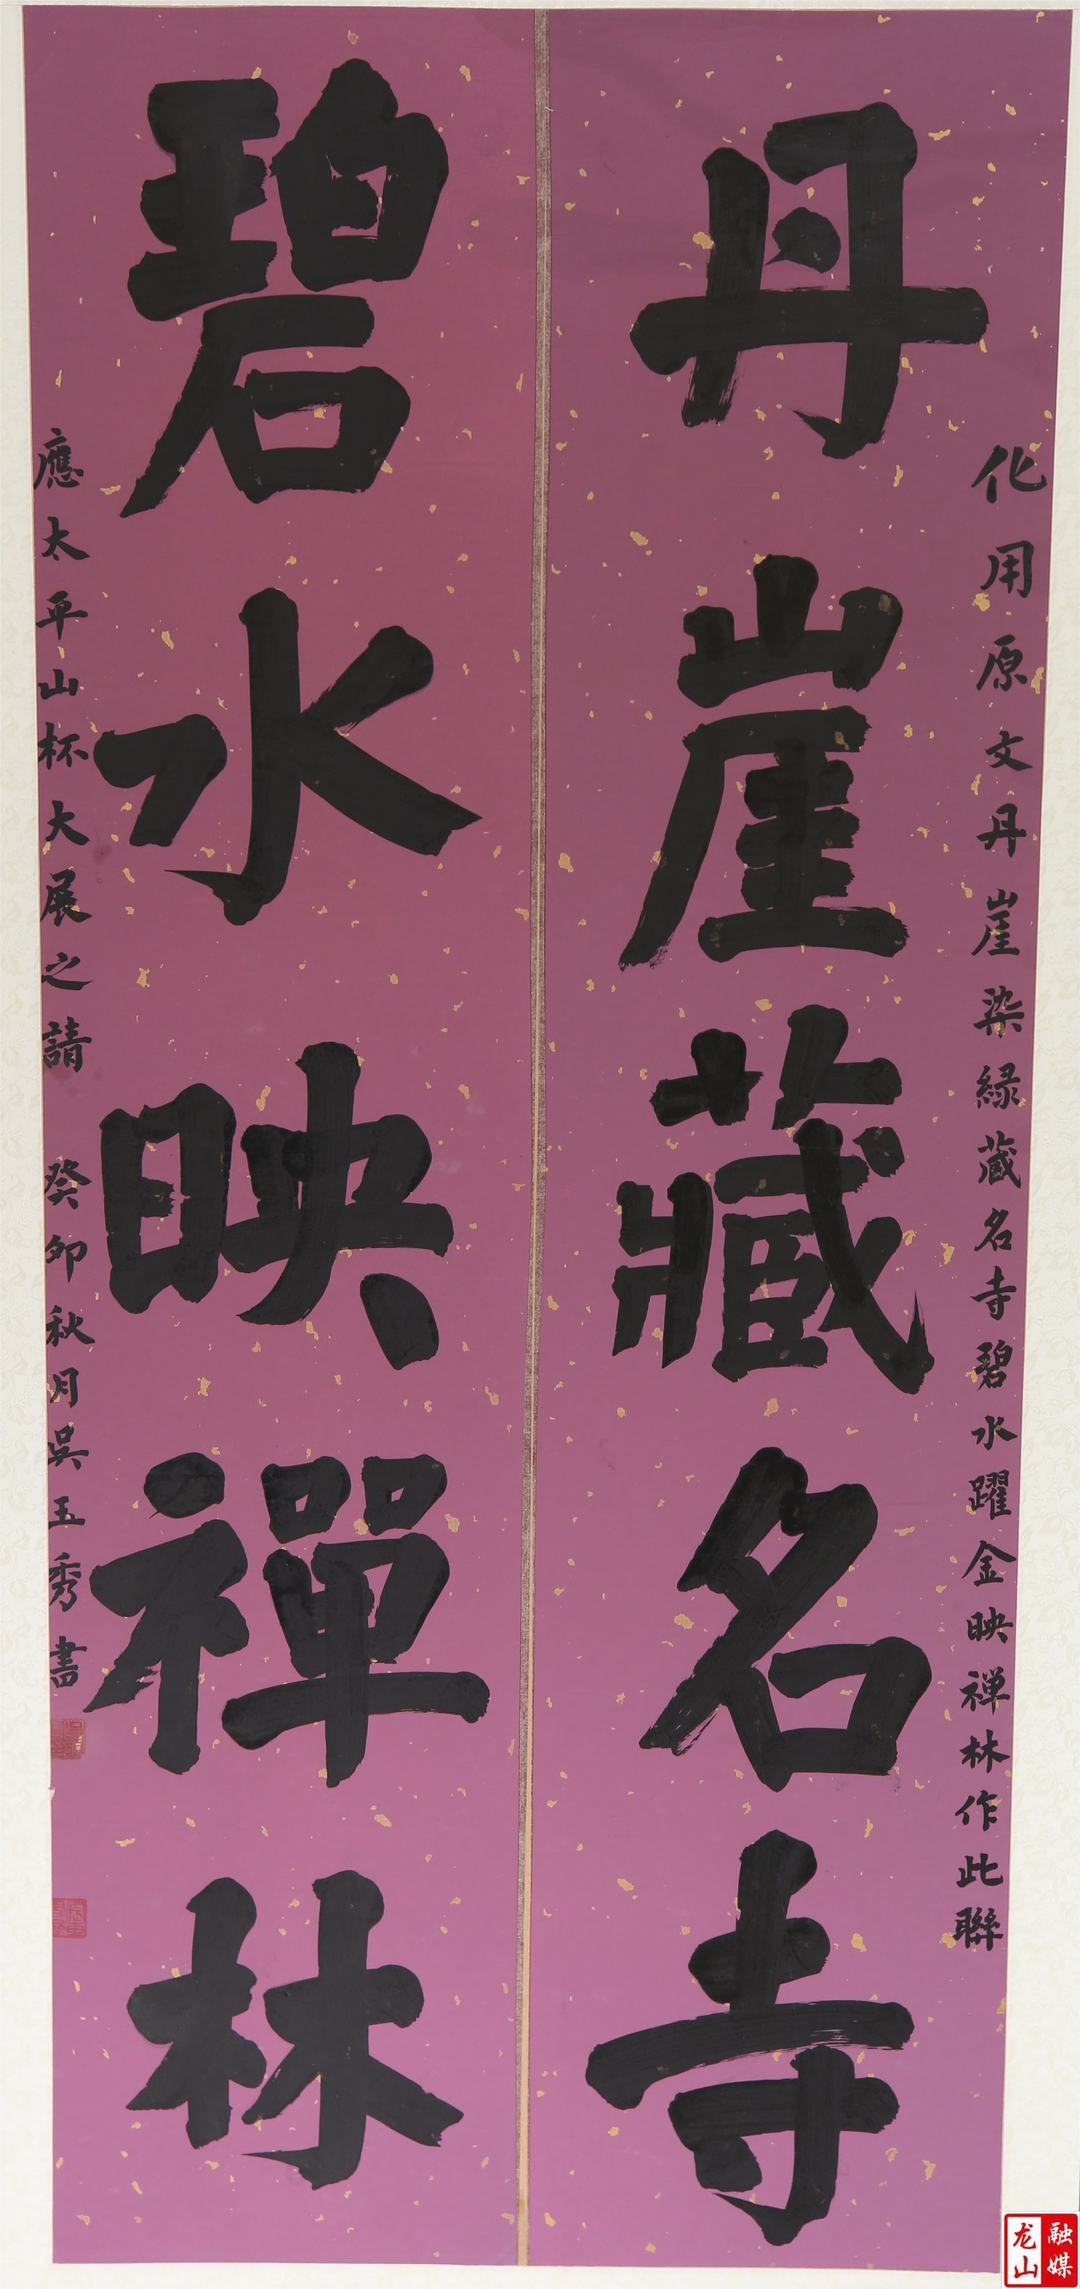 化用原文丹崖染緑藏名寺碧水躍金映禅林作此聯
丹崖藏名寺
碧水映禪林
應太平山杯大展之請 癸卯秋月吳玉秀書
龙山
融媒